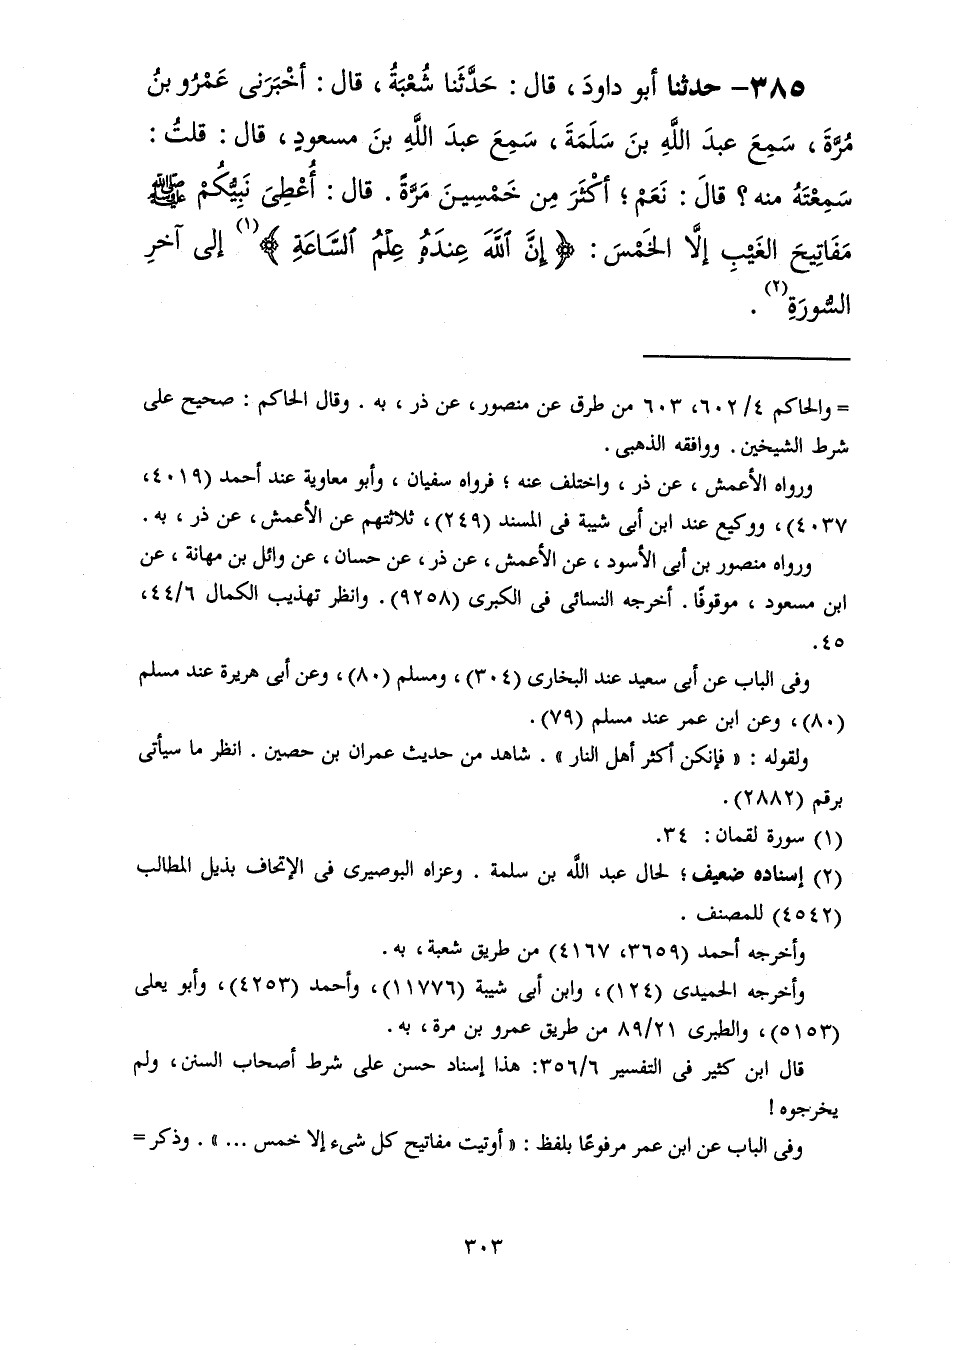 ٣٨٥- حدثنا أبو داودَ ، قال : حَدَّثَنا شُعْبَةُ ، قال : أخْبَرَنى عَمْرُو بنُ
مُرَّةَ ، سَمِعَ عبدَ اللَّهِ بنَ سَلَمَةَ ، سَمِعَ عبدَ اللَّهِ بنَ مسعودٍ ، قال : قلتُ :
سَمِعْتَهُ منه ؟ قالَ : نَعَمْ ؛ أكْثَرَ مِن خَمْسِينَ مَرَّةً . قال : أُعْطِىَ نَبِيُّكُمْ ﷺ
مَفَاتِيحَ الغَيْبِ إلَّا الخَمْسَ : ﴿ إِنَّ ٱللَّهَ عِندَهُۥ عِلْمُ ٱلسَّاعَةِ ﴾(١) إلى آخرِ
السُّورَةِ(٢) .
= والحاكم ٤/ ٦٠٢، ٦٠٣ من طرق عن منصور، عن ذر ، به . وقال الحاكم : صحيح على
شرط الشيخين . ووافقه الذهبى .
ورواه الأعمش ، عن ذر ، واختلف عنه ؛ فرواه سفيان ، وأبو معاوية عند أحمد (٤٠١٩،
٤٠٣٧) ، ووكيع عند ابن أبى شيبة فى المسند (٢٤٩) ، ثلاثتهم عن الأعمش ، عن ذر ، به .
ورواه منصور بن أبى الأسود ، عن الأعمش ، عن ذر ، عن حسان ، عن وائل بن مهانة ، عن
ابن مسعود ، موقوفًا . أخرجه النسائى فى الكبرى (٩٢٥٨) . وانظر تهذيب الكمال ٤٤/٦،
٤٥ .
وفى الباب عن أبى سعيد عند البخارى (٣٠٤) ، ومسلم (٨٠) ، وعن أبى هريرة عند مسلم
(٨٠) ، وعن ابن عمر عند مسلم (٧٩) .
ولقوله : « فإنكن أكثر أهل النار » . شاهد من حديث عمران بن حصين . انظر ما سيأتى
برقم (٢٨٨٢) .
(١) سورة لقمان : ٣٤.
(٢) إسناده ضعيف ؛ لحال عبد اللَّه بن سلمة . وعزاه البوصيرى فى الإتحاف بذيل المطالب
(٤٥٤٢) للمصنف .
وأخرجه أحمد (٣٦٥٩، ٤١٦٧) من طريق شعبة ، به .
وأخرجه الحميدى (١٢٤) ، وابن أبى شيبة (١١٧٧٦) ، وأحمد (٤٢٥٣) ، وأبو يعلى
(٥١٥٣) ، والطبرى ٨٩/٢١ من طريق عمرو بن مرة ، به .
قال ابن كثير فى التفسير ٣٥٦/٦: هذا إسناد حسن على شرط أصحاب السنن ، ولم
يخرجوه !
وفى الباب عن ابن عمر مرفوعًا بلفظ : « أوتيت مفاتيح كل شىء إلا خمس ... » . وذكر =
٣٠٣